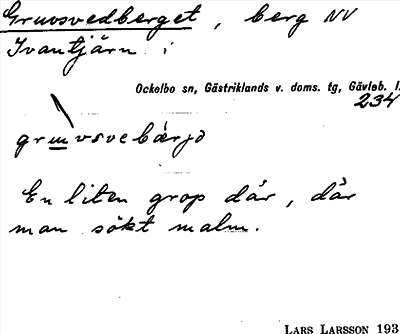 Gruvsvedberget, berg NV
Ivantjärn i
Ockelbo sn, Gästriklands v. doms. tg, Gävleb. l.
234
gruvsvebærjə
En liten grop där, där
man sökt malm.
LARS LARSSON 193